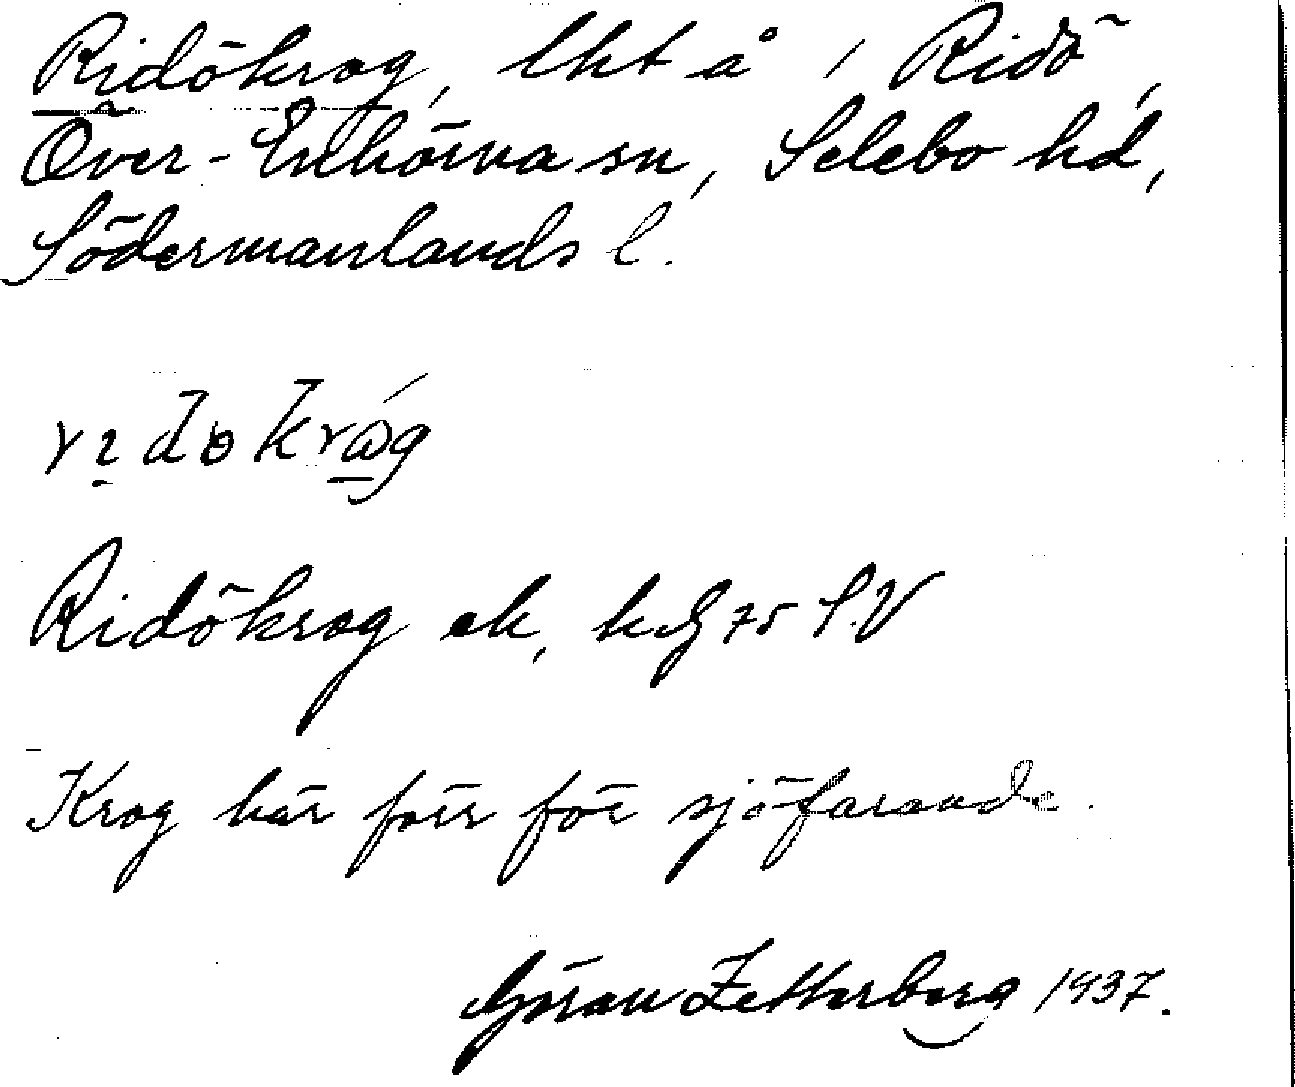 Ridökrog, lht å 1 Ridö,
Över-Enhörna sn, Selebo hd,
Södermanlands l.
Ridökrog ek, kG 75 SV
Krog här förr för sjöfarande.
Göran Zetterberg 1937.